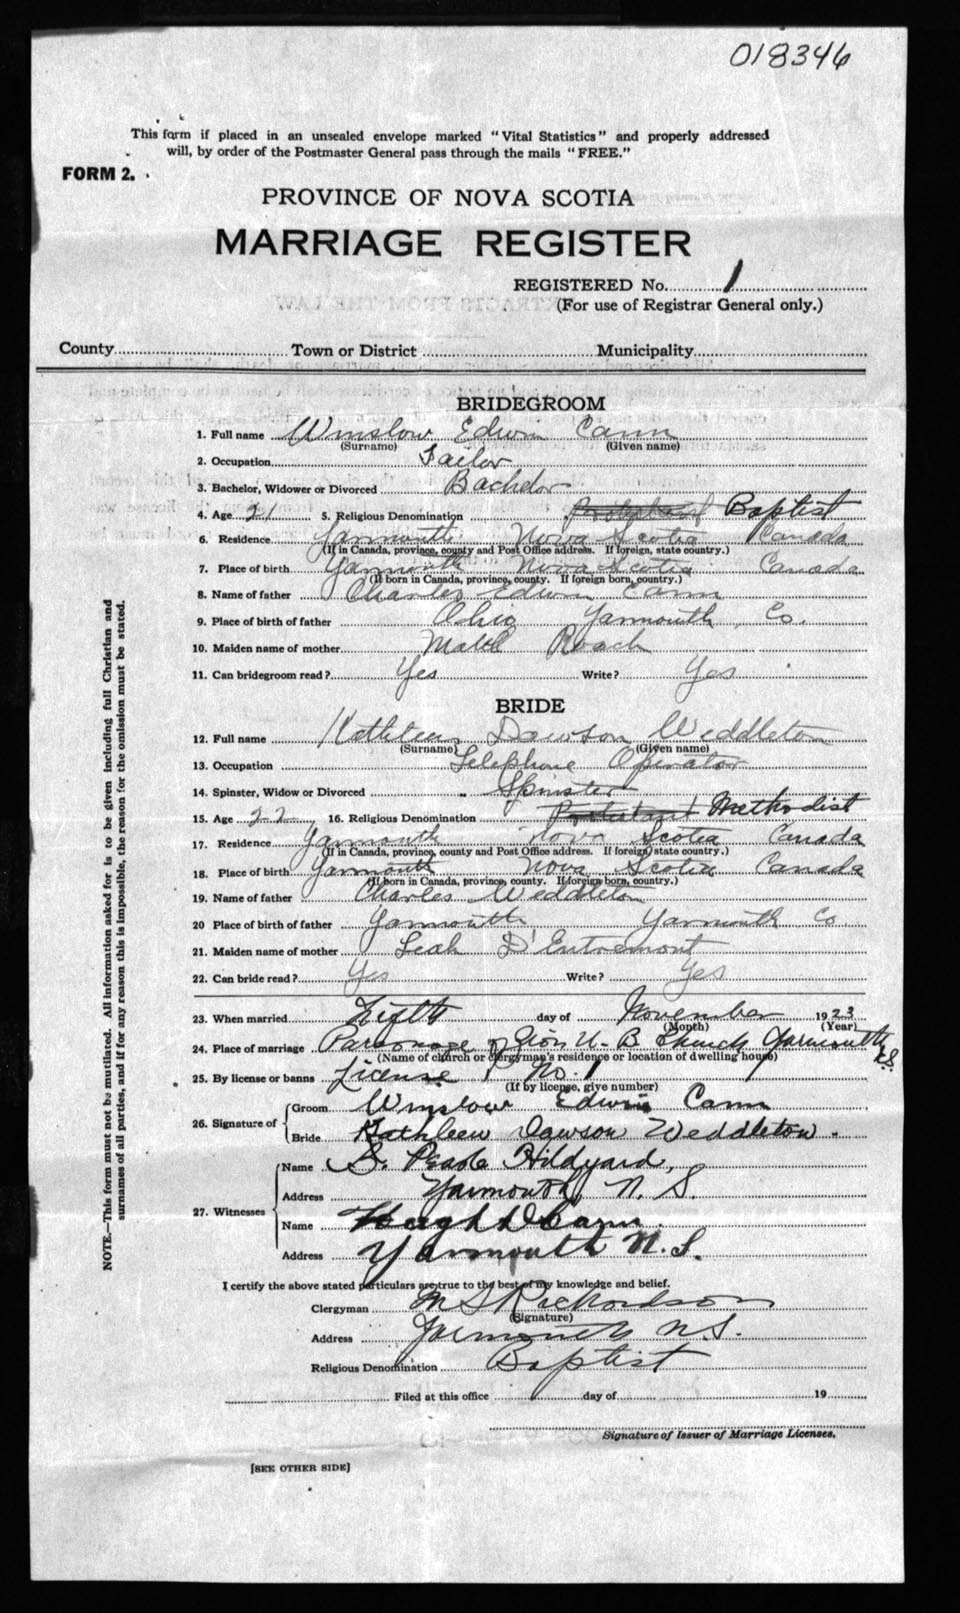 018346
This form if placed in an unsealed envelope marked "Vital Statistics" and properly addressed
will, by order of the Postmaster General pass through the mails "FREE."
FORM 2.
PROVINCE OF NOVA SCOTIA
MARRIAGE REGISTER
REGISTERED No. 1
(For use of Registrar General only.)
County Town or District Municipality
BRIDEGROOM
1. Full name Winslow Edwin Cann
(Surname) (Given name)
2. Occupation Tailor
3. Bachelor, Widower or Divorced Bachelor
4. Age 21 5. Religious Denomination Baptist
6. Residence Yarmouth Nova Scotia Canada
(If in Canada, province, county and Post Office address. If foreign, state country.)
7. Place of birth Yarmouth Nova Scotia Canada
(If born in Canada, province, county. If foreign born, country.)
8. Name of father Charles Edwin Cann
9. Place of birth of father Ohio Yarmouth Co.
10. Maiden name of mother Mabel Roach
11. Can bridegroom read? Yes Write? Yes
BRIDE
12. Full name Kathleen Dawson Weddleton
(Surname) (Given name)
13. Occupation Telephone Operator
14. Spinster, Widow or Divorced Spinster
15. Age 22 16. Religious Denomination Protestant Methodist
17. Residence Yarmouth Nova Scotia Canada
(If in Canada, province, county and Post Office address. If foreign, state country.)
18. Place of birth Yarmouth Nova Scotia Canada
(If born in Canada, province, county. If foreign born, country.)
19. Name of father Charles Weddleton
20 Place of birth of father Yarmouth Yarmouth Co
21. Maiden name of mother Leah D'Entremont
22. Can bride read? Yes Write? Yes
23. When married day of November 1923
(Month) (Year)
24. Place of marriage Parsonage of Zion U. B. Church Yarmouth N.S.
(Name of church or clergyman's residence or location of dwelling house)
25. By license or banns License No. 1
(If by license, give number)
26. Signature of Groom Winslow Edwin Cann
Bride Kathleen Dawson Weddleton.
27. Witnesses Name S. Hildyard,
Address Yarmouth, N. S.
Name Cann.
Address Yarmouth N.S.
I certify the above stated particulars are true to the best of my knowledge and belief.
Clergyman M S Richardson
(Signature)
Address Yarmouth N.S.
Religious Denomination Baptist
Filed at this office day of 19
Signature of Issuer of Marriage Licenses.
[SEE OTHER SIDE]
NOTE.—This form must not be mutilated. All information asked for is to be given including full Christian and
surnames of all parties, and if for any reason this is impossible, the reason for the omission must be stated.